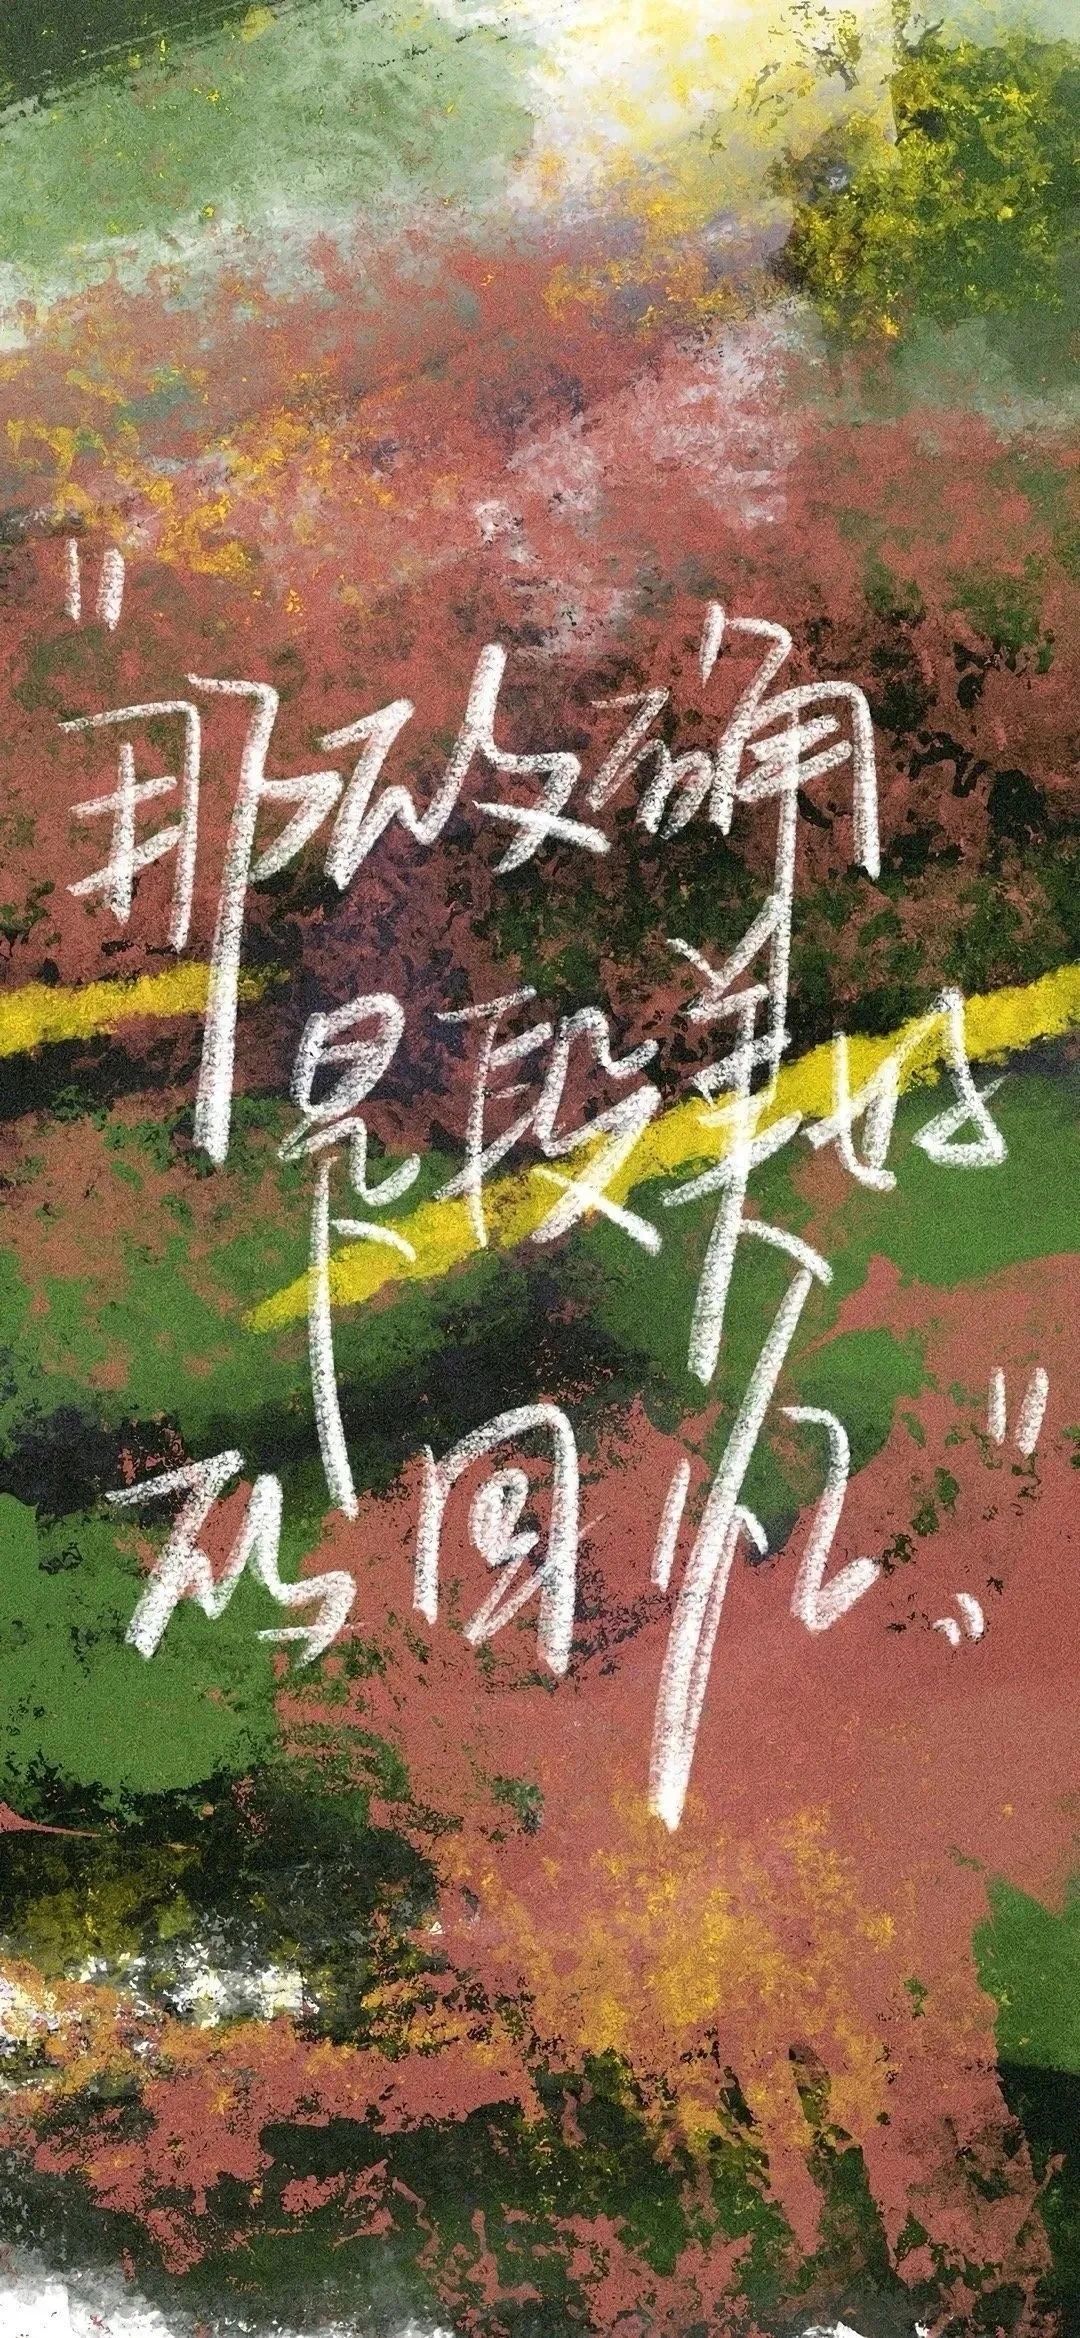 "那改确
是段美好
的回忆"